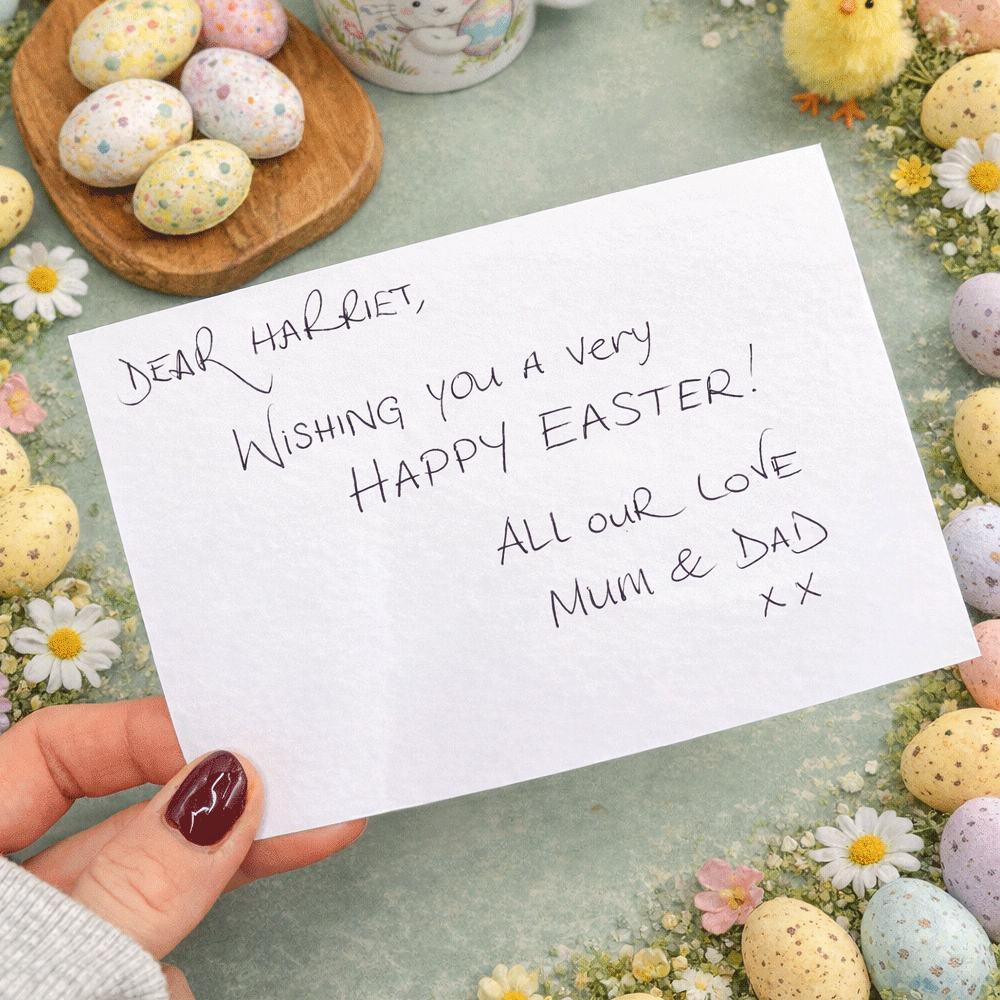 DEAR HARRIET,
WiSHiNG YOU A very
HAPPY EASTER!
ALL OUR LOVE
MUM & DAD
x x